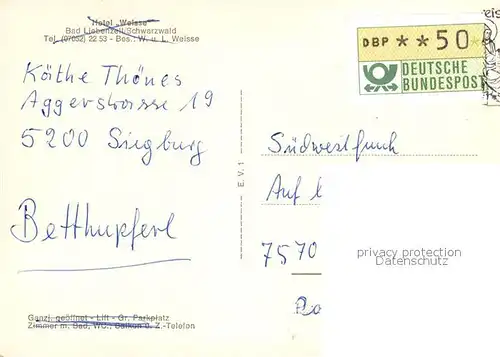 Hotel „Weisse"
Bad Liebenzell/Schwarzwald
Tel. (07052) 22 53 - Bes.: W. u. L. Weisse
Käthe Thönes
Aggerstrasse 19
5200 Siegburg
Betthupferl
Ganzj. geöffnet - Lift - Gr. Parkplatz
Zimmer m. Bad, WC, Balkon u. Z.-Telefon
E.V. 1
DBP **50
DEUTSCHE
BUNDESPOST
Südwestfunk
Auf
7570
privacy protection
Datenschutz